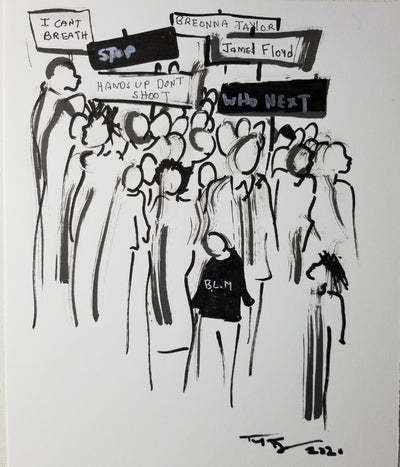 I CAN'T
BREATH
BREONNA TAYLOR
STOP
JAMEL FLOYD
HANDS UP DON'T
SHOOT
WHO NEXT
B.L.M
2020